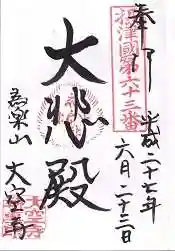 奉拝
摂津國第六十三番
平成二十七年
六月二十三日
大悲殿
為楽山
大空寺